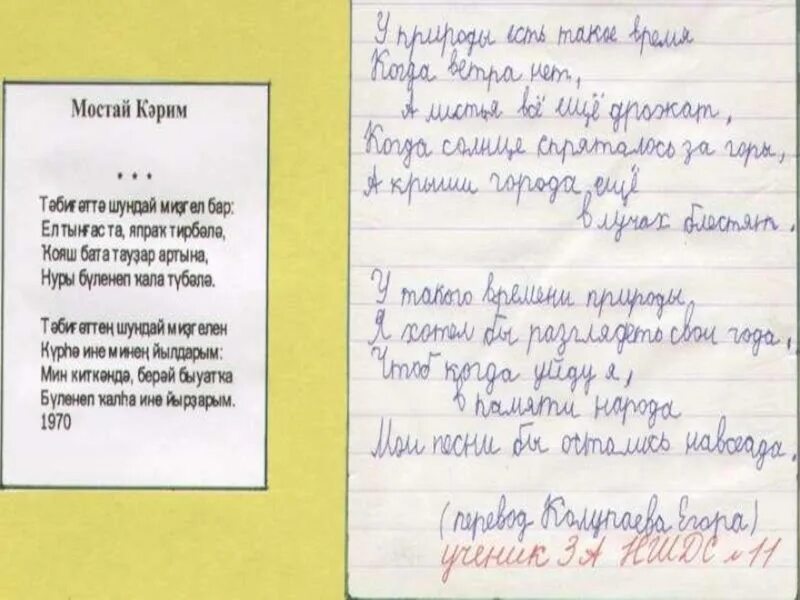 Мостай Кәрим
* * *
Тәбиғәттә шундай миҙгел бар:
Ел тынғас та, япраҡ тирбәлә,
Ҡояш бата тауҙар артына,
Нуры бүленеп ҡала түбәлә.
Тәбиғәттең шундай миҙгелен
Күрһә ине минең йылдарым:
Мин киткәндә, берәй быуатҡа
Бүленеп ҡалһа ине йырҙарым.
1970
У природы есть такое время
Когда ветра нет,
А листья всё ещё дрожат,
Когда солнце спряталось за горы,
А крыши города ещё
в лучах блестят.
У такого времени природы
Я хотел бы разглядеть свои года,
Чтоб когда уйду я,
в памяти народа
Мои песни бы остались навсегда.
(перевод Колупаева Егора)
ученик 3А НШДС №11